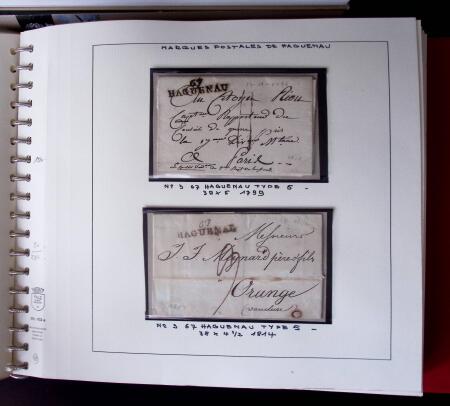 MARQUES POSTALES DE HAGUENAU
67
HAGUENAU
Au Citoyen
Rapporteur du
Conseil de guerre
la 17me
à Paris
No 3 67 HAGUENAU TYPE 5 -
38 x 5 1799
67
HAGUENAU
Messieurs
J J Meynard père & fils
Orange
(vaucluse)
No 3 67 HAGUENAU TYPE 5 -
38 x 4 1/2 1814